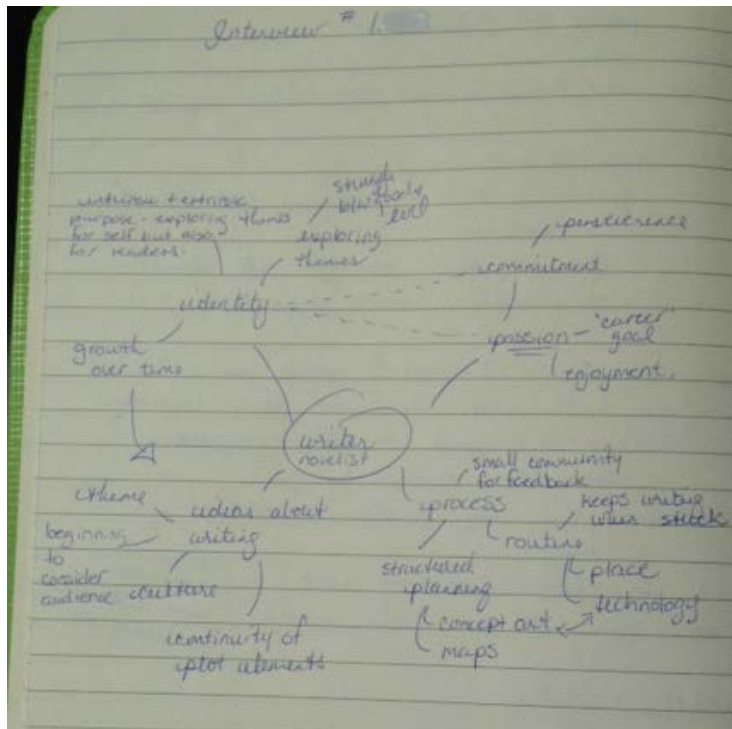 Interview # 1.
intrinsic + extrinsic
purpose - exploring themes
for self but also
for readers.
struggle
btw good &
evil
exploring
themes
identity
growth
over time
perseverence
commitment
passion - "career"
goal
enjoyment.
writer
novelist
theme
ideas about
writing
beginning
to
consider
audience
culture
continuity of
plot elements
small community
for feedback
process
routine
keeps writing
when stuck
place
technology
structured
planning
concept art
maps